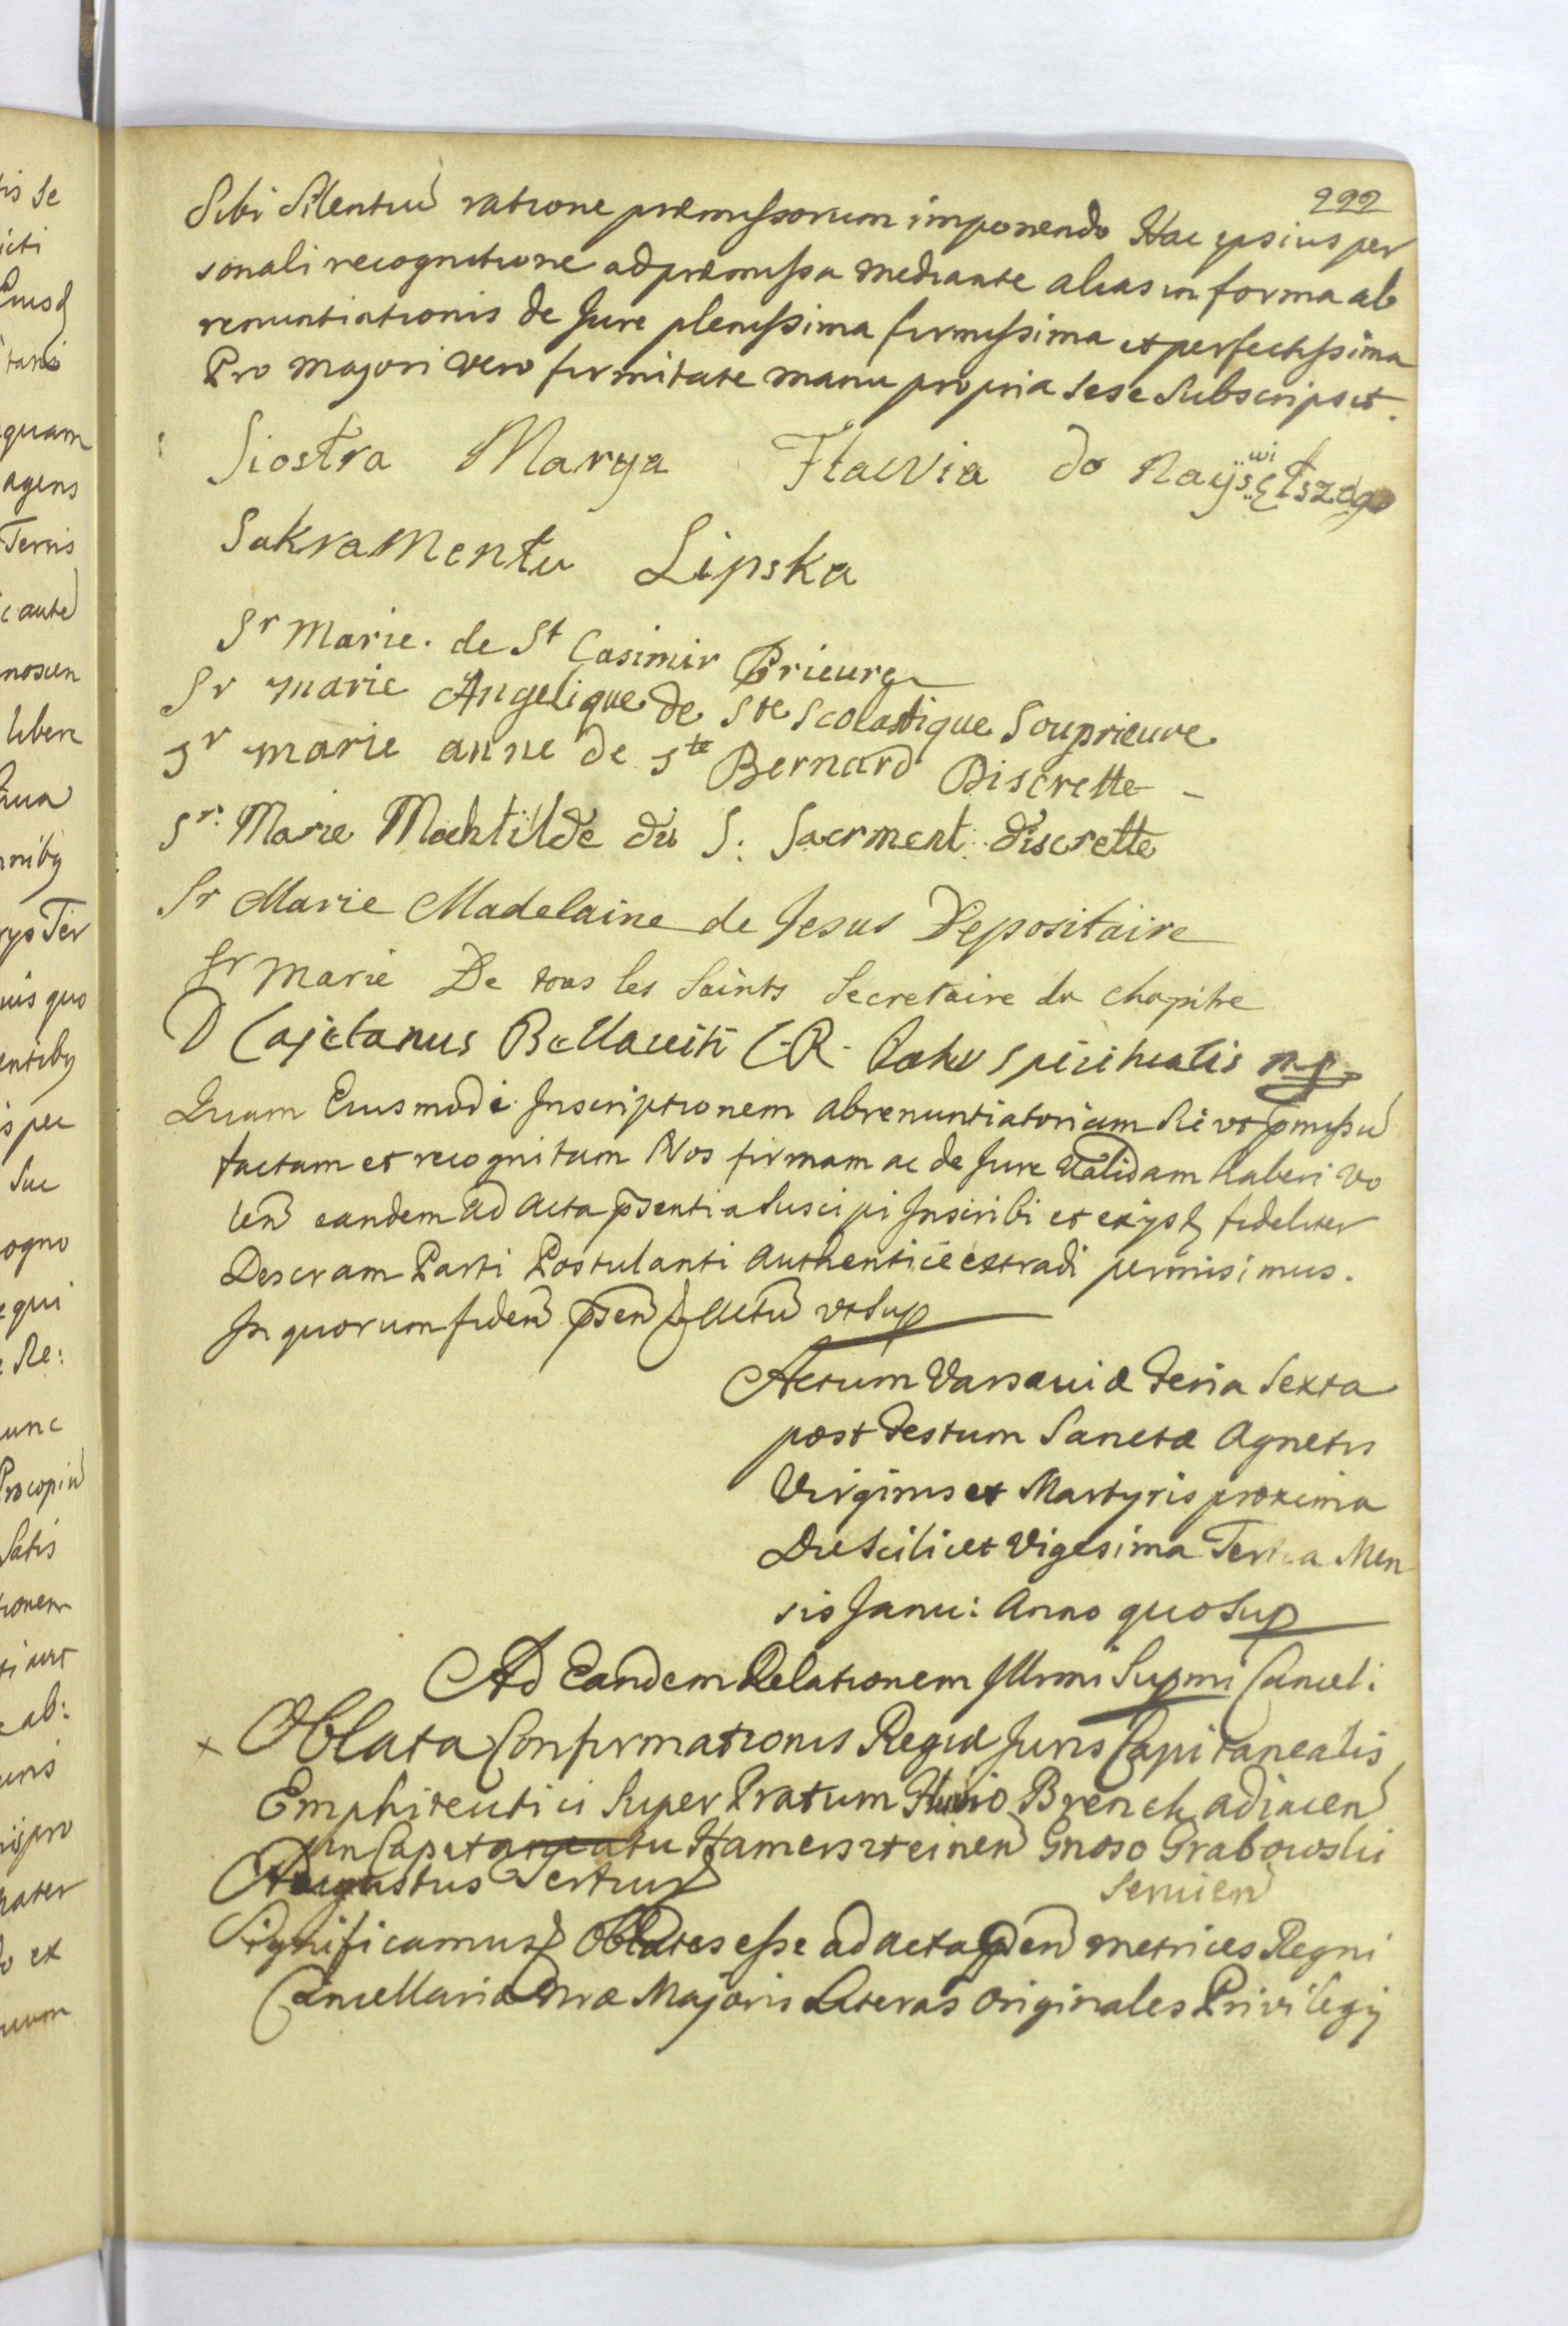 222
Sibi Silentiū ratione præmissorum imponendo Hac ipsius per
sonali recognitione ad præmissa mediante alias in forma ab
renuntiationis de Jure plenissima firmissima et perfectissima
Pro majori vero firmitate manu propria sese subscripsit.
Siostra Marya Flawia do Nayswiętszego
Sakramentu Lipska
Sr Marie. de St Casimir Prieure
Sr marie Angelique de Ste Scolastique Souprieure
Sr marie anne de Ste Bernard Discrette –
Sr. Marie Mechtilde du S. Sacrment discrette
Sr Marie Madelaine de Jesus Depositaire
Sr Marie De tous les Saints Secretaire du chapitre
D Cajetanus Bellaviti C.R. Pater spiritualis mp
Quam Eiusmodi Inscriptionem abrenuntiatoriam Si ut pmissū
factam et recognitam Nos firmam ac de Jure Validam haberi vo
len̄ eandem ad Acta p̄sentia Suscipi Inscribi et exijsd fideliter
Descram Parti Postulanti Authentice extradi permisimus.
In quorum fidem p̄sen Actū ut Sup
Actum Varsaviæ Feria Sexta
post Festum Sanctæ Agnetis
Virginis et Martyris proxima
Die Scilicet Vigesima Tertia Men
sis Janu: Anno quo Sup
Ad Eandem Relationem Illrmi Supmi Cancel:
x Oblata Confirmationis Regiæ Juris Capitanealis
Emphiteutici Super Pratum Fluvio Brenck adiacen̄
in Capitaneatu Hamerszteinen̄ Gnoso Grabowski
Servien̄
Augustus Tertius
Significamus Oblatas esse ad acta p̄den̄ metrices Regni
Cancellariæ Nræ Majoris Literas Originales Privilegij